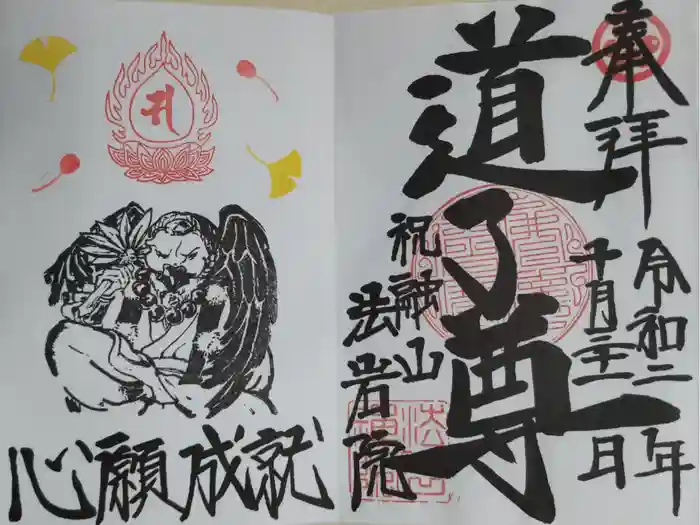 奉拝
令和二年
十月二十一日
道了尊
祝融山
法岩院
心願成就